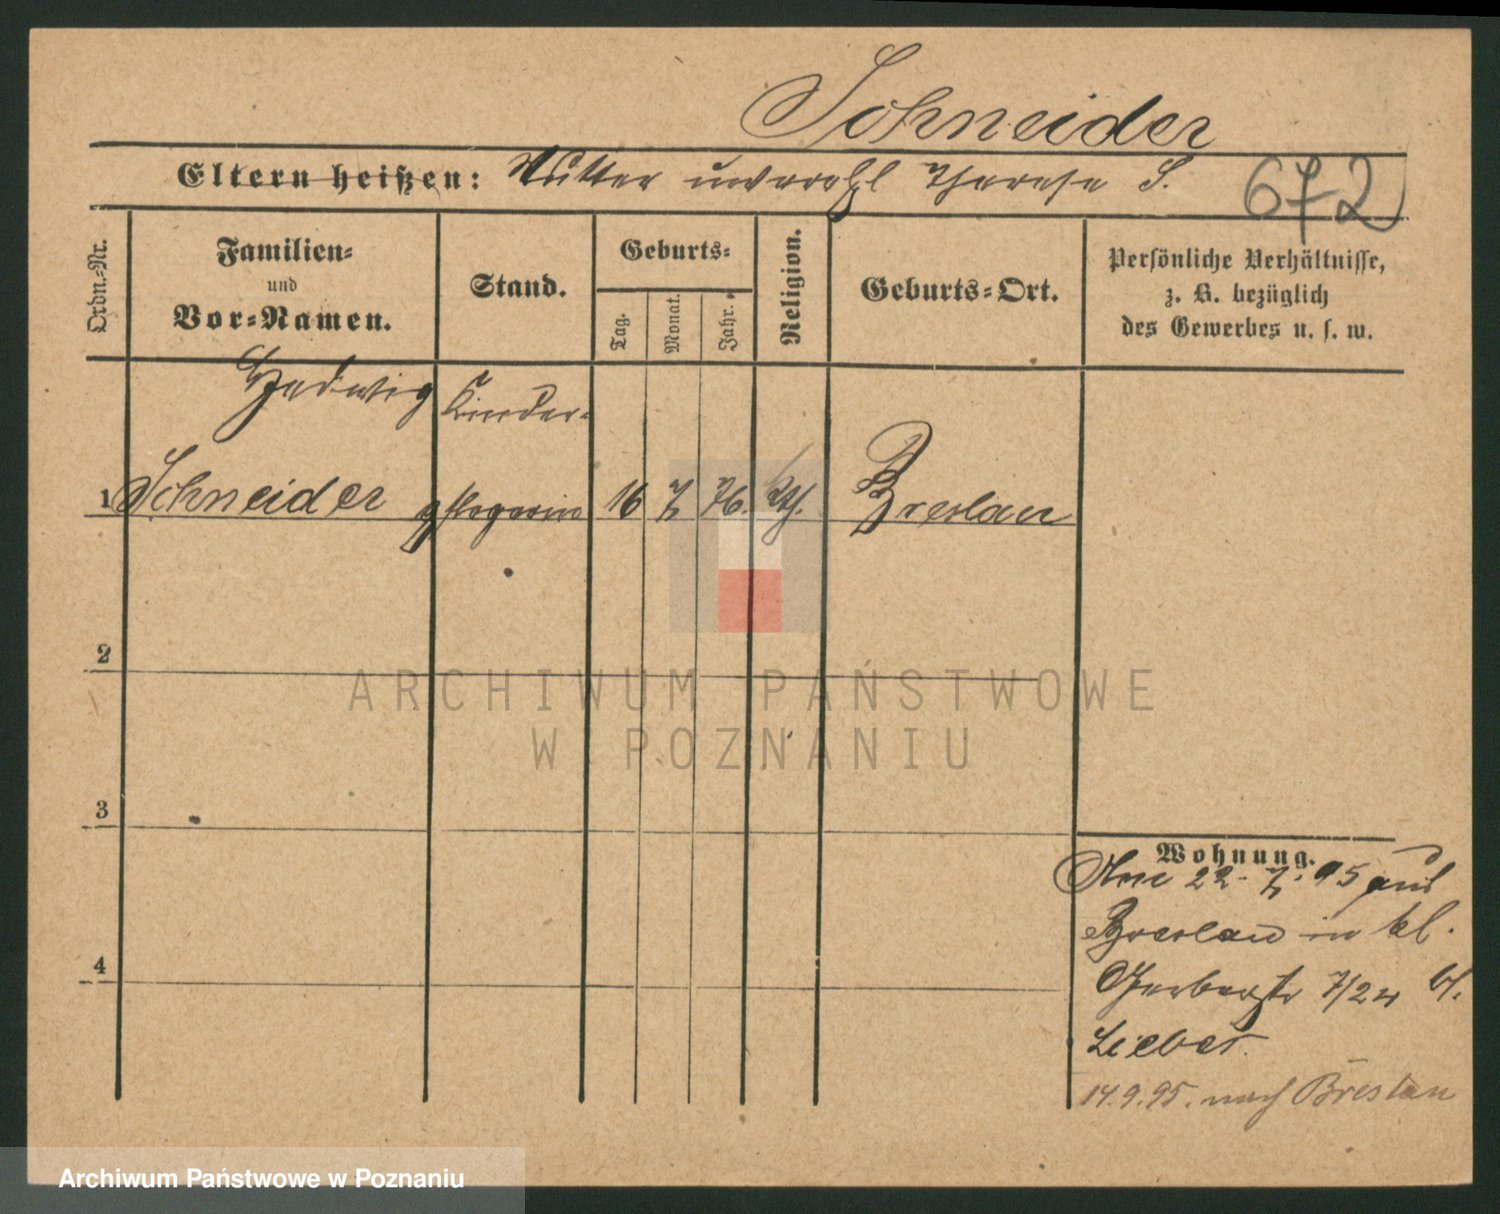 Schneider
Eltern heißen: Mutter unverehl Therese S.
672
Ordn.-Nr.
Familien-
und
Vor-Namen.
Stand.
Geburts-
Tag.
Monat.
Jahr.
Religion.
Geburts-Ort.
Persönliche Verhältnisse,
z. B. bezüglich
des Gewerbes u. s. w.
Hedwig
Kinder-
1 Schneider
pflegerin
16 7 76. kth. Breslau
2
3
4
Wohnung.
22. 7. 95 aus
Breslau in kl.
Gerberstr 7/24 b.
Lieber.
14.9.95. nach Breslau
ARCHIWUM PAŃSTWOWE
W POZNANIU
Archiwum Państwowe w Poznaniu